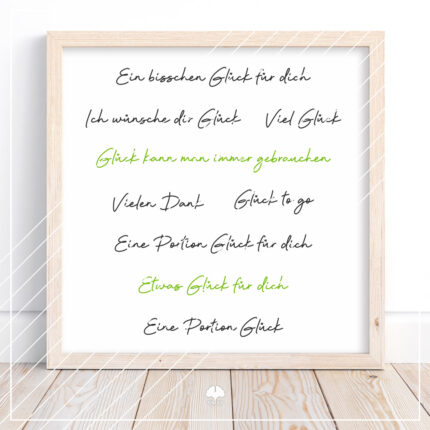 Ein bisschen Glück für dich
Ich wünsche dir Glück Viel Glück
Glück kann man immer gebrauchen
Vielen Dank Glück to go
Eine Portion Glück für dich
Etwas Glück für dich
Eine Portion Glück